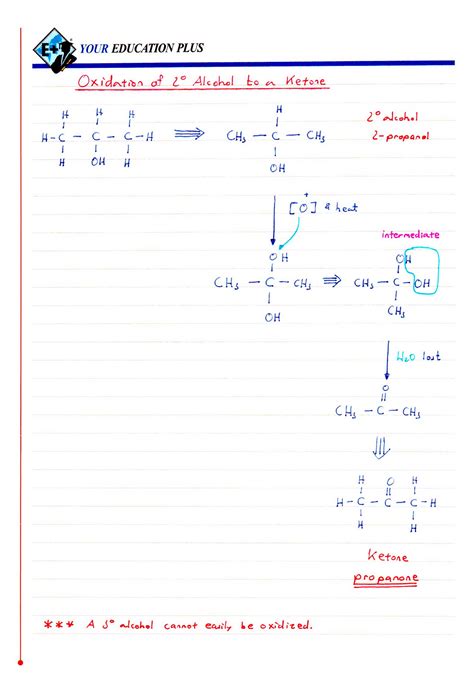 E+
YOUR EDUCATION PLUS
Oxidation of 2° Alcohol to a Ketone
H H H
H-C - C - C-H
H OH H
⟹
H
CH₃ - C - CH₃
OH
2° alcohol
2-propanol
+
[O] & heat
OH
CH₃ - C - CH₃
OH
⟹
intermediate
OH
CH₃ - C - OH
CH₃
H₂O lost
O
CH₃ - C - CH₃
H O H
H - C - C - C - H
H H
Ketone
propanone
*** A 3° alcohol cannot easily be oxidized.